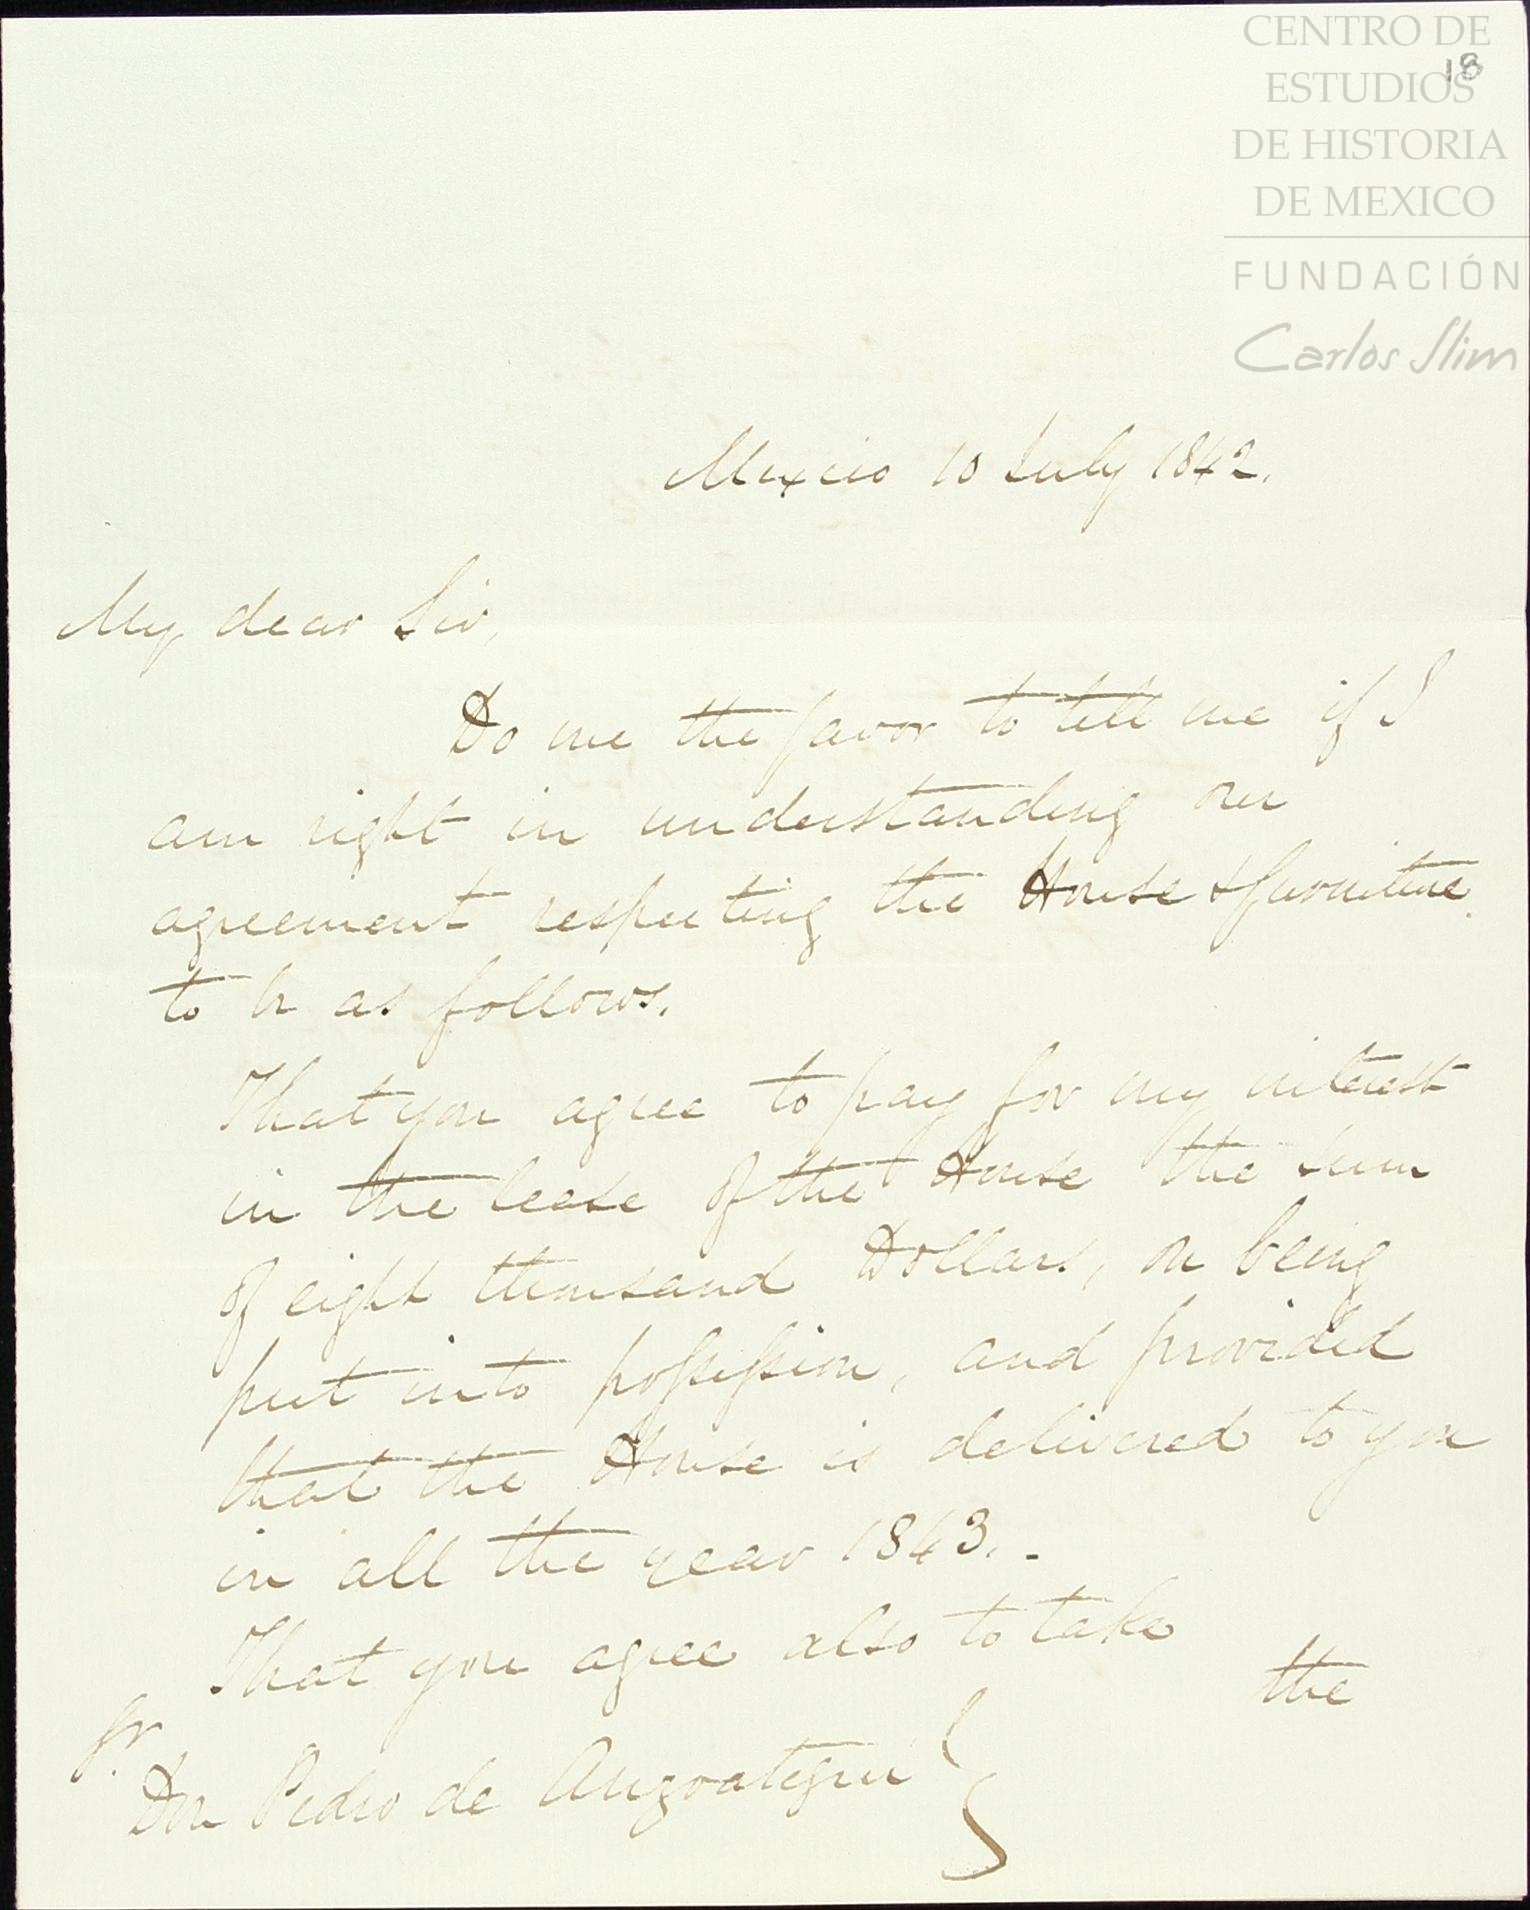 CENTRO DE
ESTUDIOS
DE HISTORIA
DE MEXICO
FUNDACIÓN
Carlos Slim
18
Mexico 10 July 1842.
My dear Sir,
Do me the favor to tell me if I
am right in understanding our
agreement respecting the House & furniture
to be as follows.
That you agree to pay for my interest
in the lease of the House the sum
of eight thousand Dollars, on being
put into possession, and provided
that the House is delivered to you
in all the year 1843.
That you agree also to take
the
Sr.
Don Pedro de Anzoategui